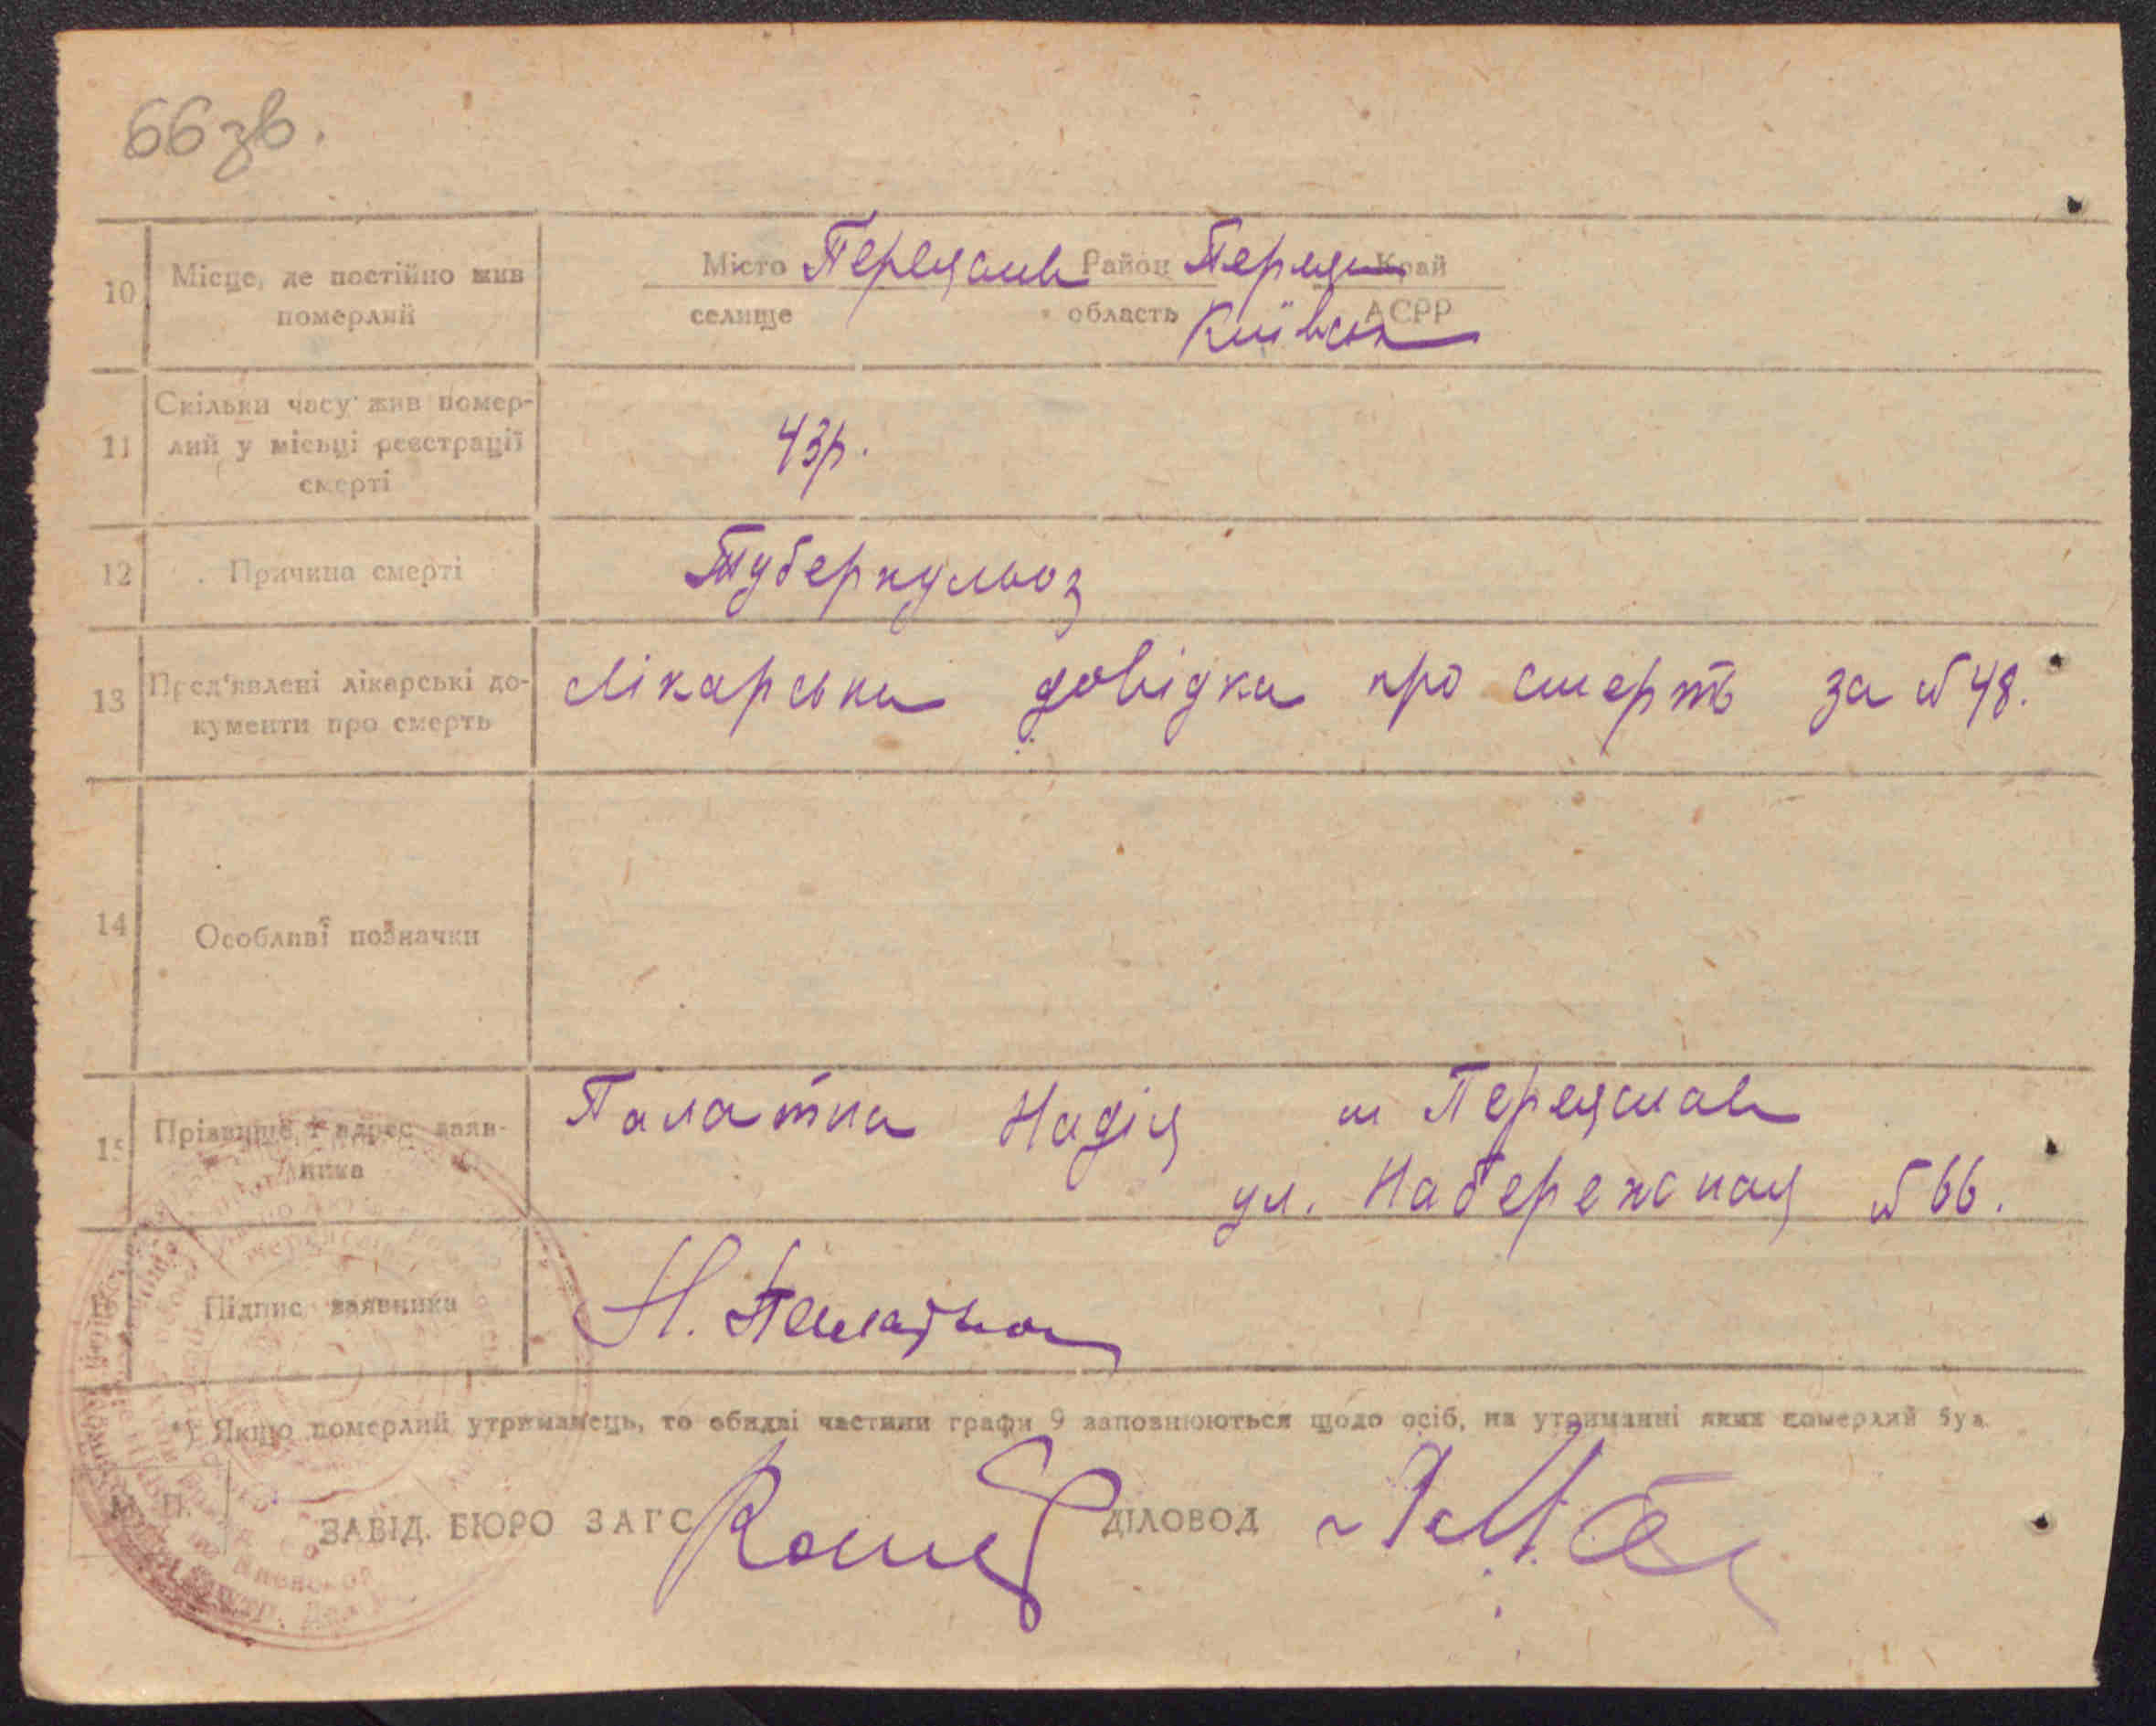 66 зв.
10 Місце, де постійно жив померлий
Місто Переяслав Район Переяс Край
селище область Київськ АСРР
11 Скільки часу жив помер-
лий у місці реєстрації
смерті
43 р.
12 Причина смерті
Туберкульоз
13 Пред'явлені лікарські до-
кументи про смерть
Лікарська довідка про смерть за №48.
14 Особливі позначки
15 Прізвище і адрес заяв-
ника
Палатна Надія м Переяслав
ул. Набережная №66.
Підпис заявника
Н. Палатна
*) Якщо померлий утриманець, то обидві частини графи 9 заповнюються щодо осіб, на утриманні яких померлий був
М. П.
ЗАВІД. БЮРО ЗАГС ДІЛОВОД